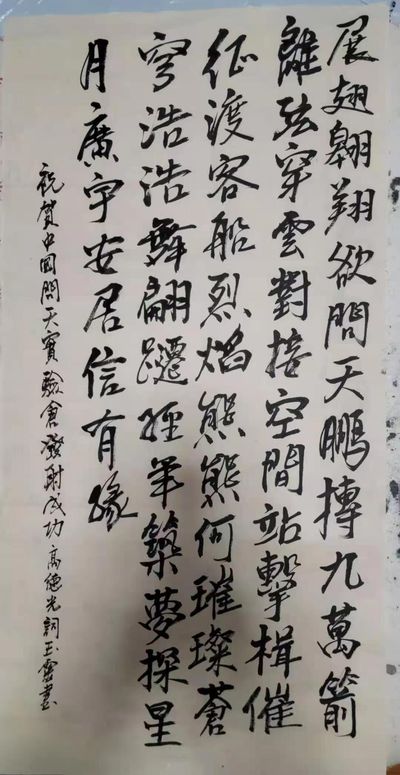 展翅翱翔欲問天鵬搏九萬箭
離弦穿雲對接空間站擊楫催
征渡客船烈焰熊熊何璀璨蒼
穹浩浩舞翩躚經年築夢探星
月廣宇安居信有緣
祝賀中國問天實驗倉發射成功高德光詞玉靈書